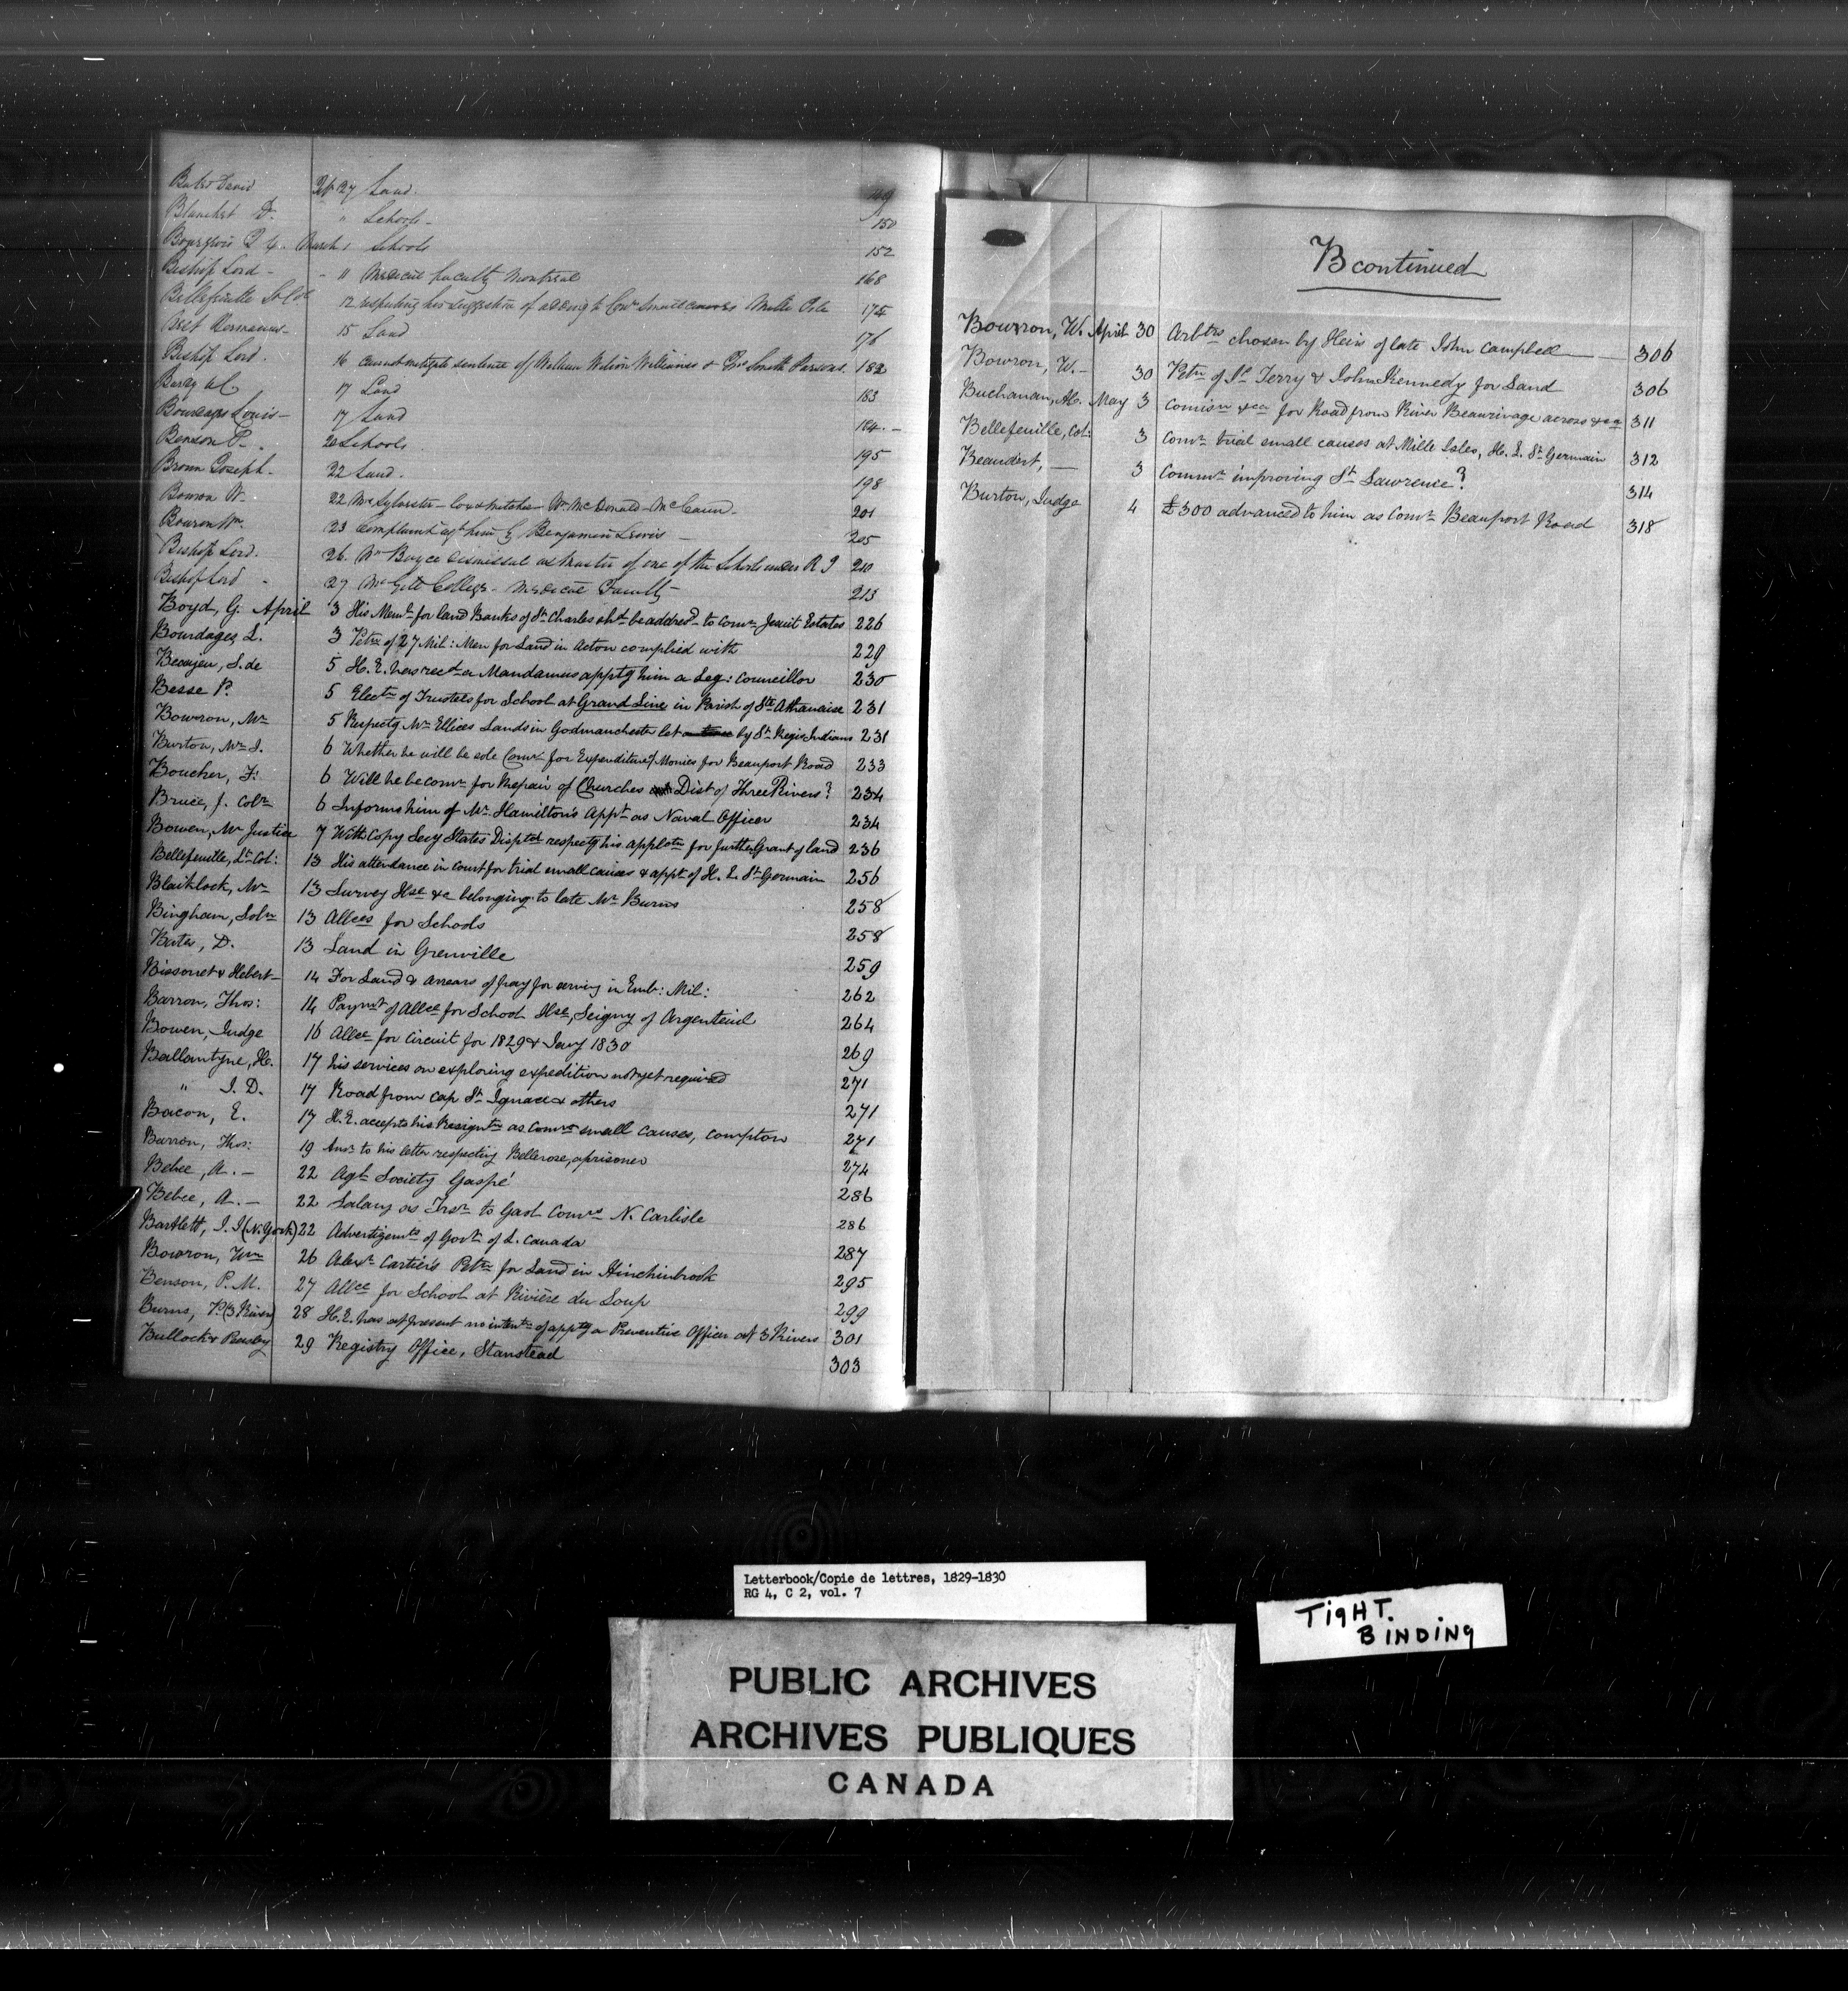 Bates David Feb 27 Land. 149
Blanchet D. " Schools - 150
Bourgeois March 1 Schools 152
Bishop Lord - " 11 Medical faculty Montreal 168
Bellefeuille Lt Col 12 respecting his suggestion of adding to Comrs Small causes Mille Isles 175
Best Hermanus - 15 Land 176
Bishop Lord. 16 cannot mitigate sentence of William Wilson Williams & Smith Parsons. 182
17 Land 183
Bourdages Louis - 17 Land 184. -
Benson P. 20 Schools 195
Brown Joseph - 22 Land. 198
Bowron W. 22 Mr Sylvester - Wm McDonald - McCann - 201
Bowron Wm. 23 complaint agt him by Benjamin Lewis - 205
Bishop Lord. 26. Wm Boyce dismissal as Master of one of the Schools under R I 210
Bishop Lord - 27 McGill College - Medical Faculty 213
Boyd, G. April 3 His Meml for land Banks of St Charles shd be addresd to Comr Jesuit Estates 226
Bourdages, L. 3 Petn of 27 Mil: Men for Land in Acton complied with 229
Beaujeu, S. de 5 H. E. has recd a Mandamus apptg him a Leg: Councillor 230
Besse P. 5 Electn of Trustees for School at Grand Line in Parish of Ste Athanaise 231
Bowron, Mr 5 Respectg Mr Ellices Lands in Godmanchester let by St Regis Indians 231
Burton, Mr J. 6 Whether he will be sole Comr for Expenditure of Monies for Beauport Road 233
Boucher, F. 6 Will he be comr for Repair of Churches Dist of Three Rivers? 234
Bruce, J. Colr. 6 Informs him of Mr. Hamilton's Appt as Naval Officer 234
Bowen, Mr Justice 7 With Copy Secy States Disptch respectg his applcatn for further Grant of land 236
Bellefeuille, Lt Col: 13 His attendance in Court for trial small causes & appt of H. L. St Germain 256
Blaiklock, Mr 13 Survey Hse &c belonging to late Mr Burns 258
Bingham, Soln 13 Allces for Schools 258
Bates, D. 13 Land in Grenville 259
Bissonet & Hebert - 14 For Land & arrears of pay for serving in Emb: Mil: 262
Barron, Thos: 14 Paymt of Allce for School Hse, Seigny of Argenteuil 264
Bowen, Judge 16 Allce for Circuit for 1829 & Jany 1830 269
Ballantyne, H. 17 his services on exploring expedition not yet required 271
" J. D. 17 Road from Cap St Ignace & others 271
Bacon, E. 17 H. E. accepts his Resigntn as Comr small causes, Compton 271
Barron, Thos: 19 Ansr to his letter respecting Bellerose, a prisoner 274
Bebee, A. - 22 Agl Society Gaspé 286
Bebee, A. - 22 Salary as Trsr to Gaol Comrs N. Carlisle 286
Bartlett, J. J (N. York) 22 Advertizemts of Govt of L. Canada 287
Bowron, Wm 26 Alexr Cartier's Petn for Land in Hinchinbrook 295
Benson, P. M. 27 Allce for School at Rivière du Loup 299
Burns, P. (3 Rivers) 28 H. E. has at present no intentn of apptg a Preventive Officer at 3 Rivers 301
Bullock & Peasley 29 Registry Office, Stanstead 303
B continued
Bowron, W. April 30 Arbtrs chosen by Heirs of late John Campbell 306
Bowron, W. - 30 Petn of St Terry & John Kennedy for Land 306
Buchanan, A. May 3 Comisn &ca for Road from River Beaurivage across &ca 311
Bellefeuille, Col: 3 Comr trial small causes at Mille Isles, H. L. St Germain 312
Beaudert, - 3 Commr improving St Lawrence? 314
Burton, Judge 4 £300 advanced to him as Comr Beauport Road 318
Letterbook/Copie de lettres, 1829-1830
RG 4, C 2, vol. 7
TIGHT.
BINDING
PUBLIC ARCHIVES
ARCHIVES PUBLIQUES
CANADA